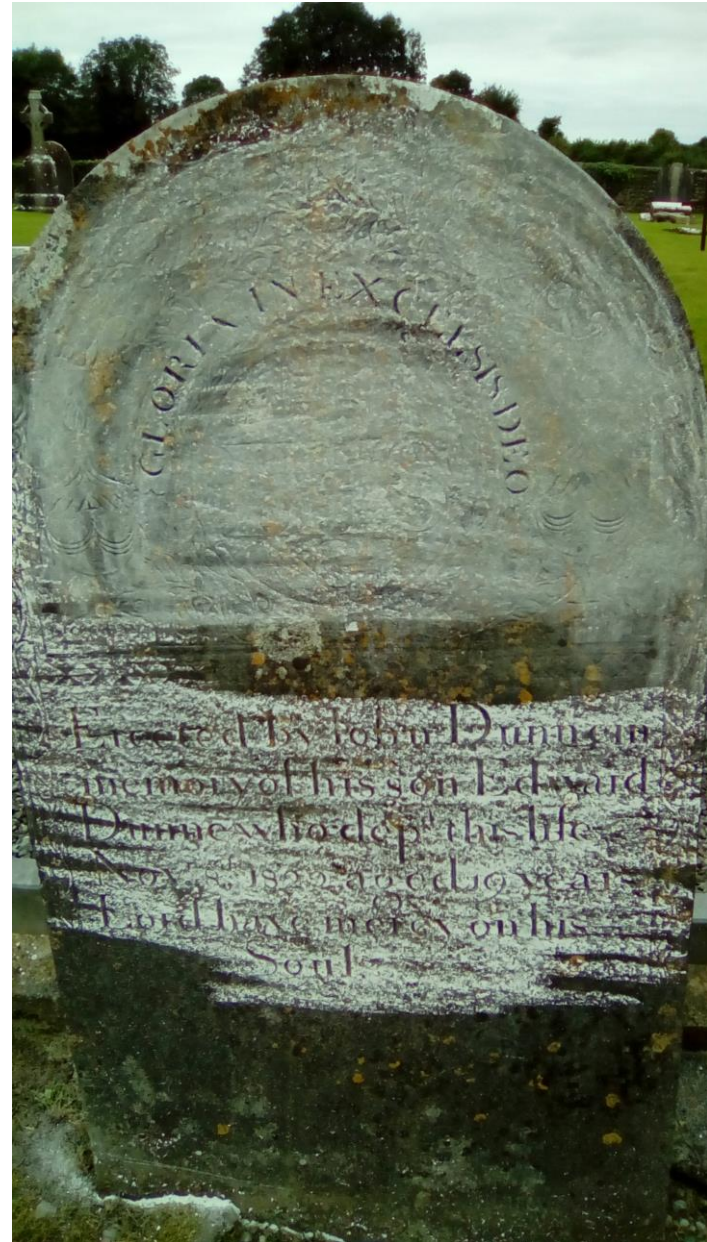 GLORIA IN EXCELSIS DEO
Erected by John Dunne in
memory of his son Edward
Dunne who dep.d this life
Nov.r 8th 1822 aged 19 years
Lord have mercy on his
Soul